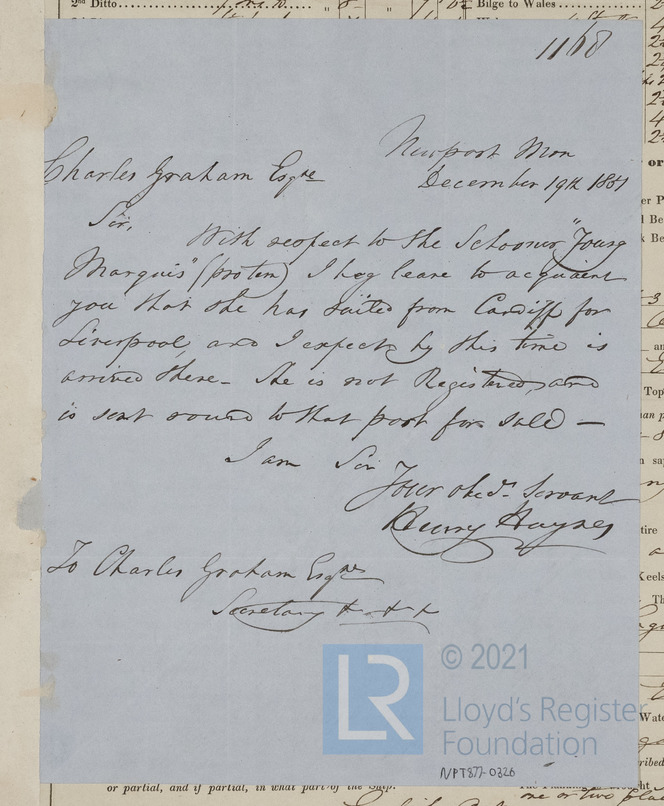 2nd Ditto
Bilge to Wales
1168
Newport Mon
Charles Graham Esqre
December 19th 1851
Sir,
With respect to the Schooner "Young
Marquis" (protem) I beg leave to acquaint
you that she has sailed from Cardiff for
Liverpool, and I expect by this time is
arrived there - She is not Registered, and
is sent round to that port for sale -
I am Sir
Your obedt Servant
Henry Haynes
To Charles Graham Esqre
Secretary
© 2021
LR
Lloyd's Register
Foundation
NPT877-0326
or partial, and if partial, in what part of the Ship.
me or two